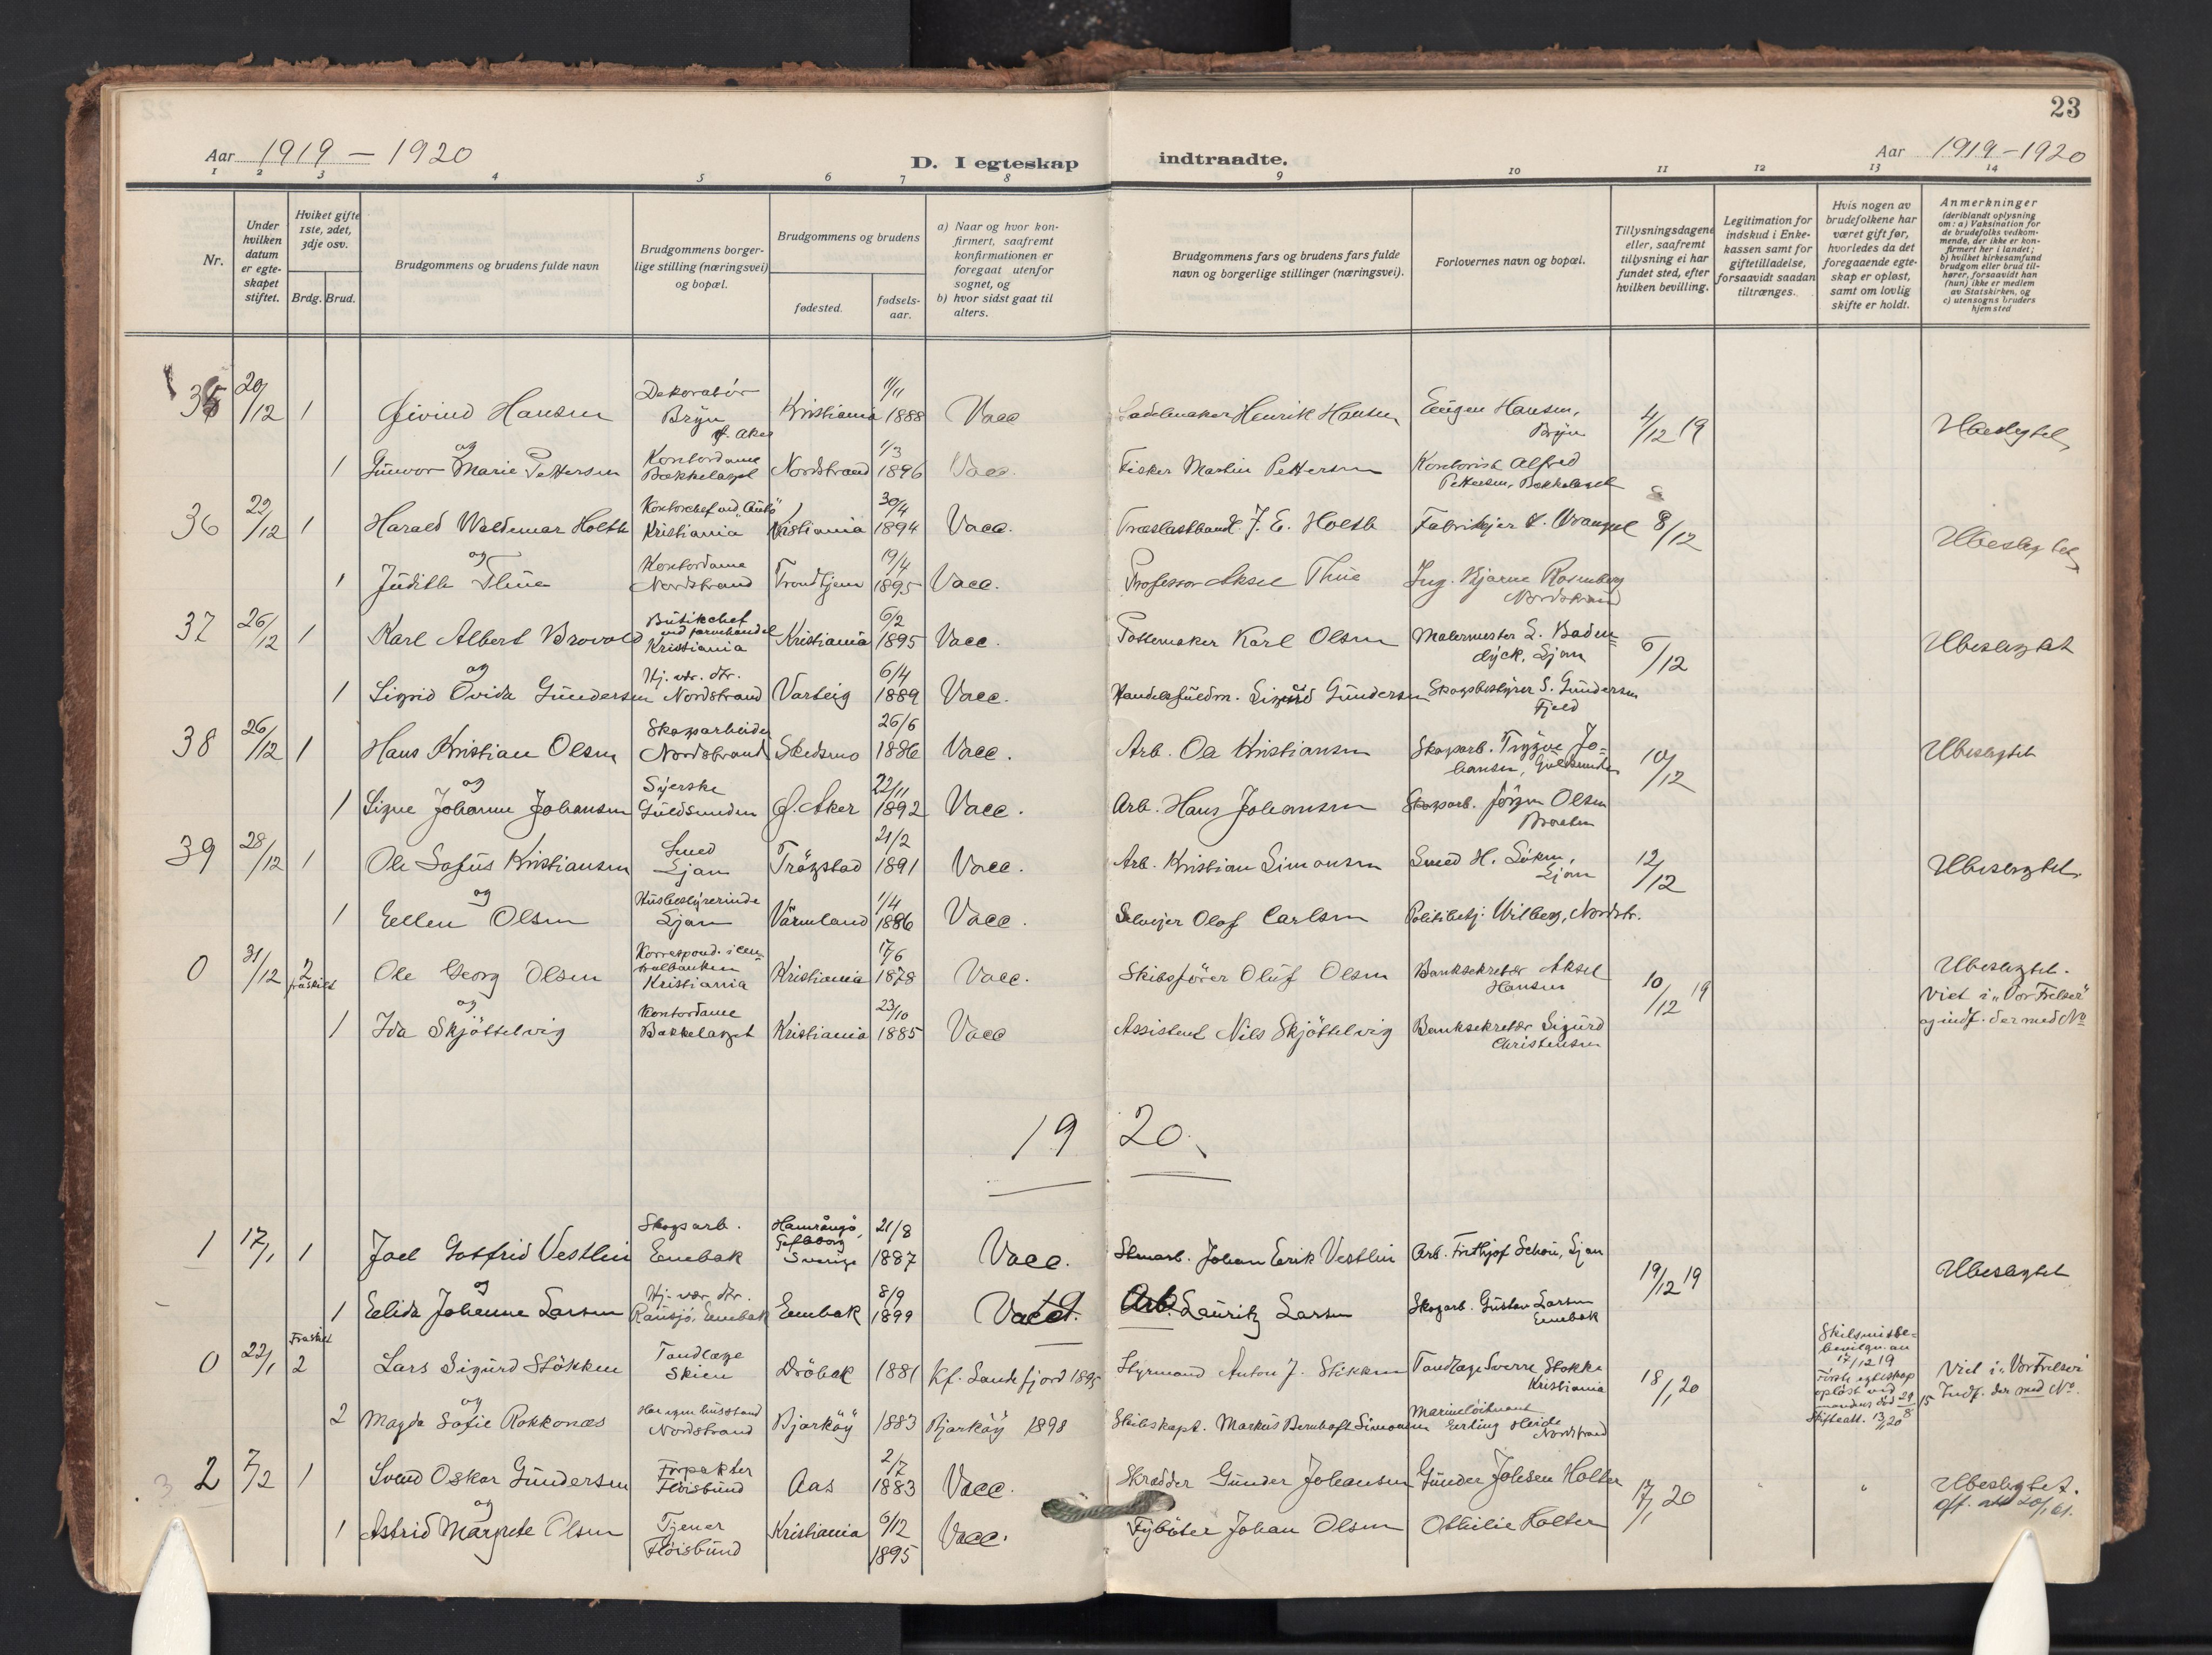 23
Aar 1919 – 1920
D. I egteskap indtraadte.
Aar 1919 – 1920
1 2 3 4 5 6 7 8 9 10 11 12 13 14
Nr.
Under hvilken datum er egteskapet stiftet.
Hviket gifte 1ste, 2det, 3dje osv.
Brdg. Brud.
Brudgommens og brudens fulde navn
Brudgommens borgerlige stilling (næringsvei) og bopæl.
Brudgommens og brudens
fødested.
fødselsaar.
a) Naar og hvor konfirmert, saafremt konfirmationen er foregaat utenfor sognet, og
b) hvor sidst gaat til alters.
Brudgommens fars og brudens fars fulde navn og borgerlige stillinger (næringsvei).
Forlovernes navn og bopæl.
Tillysningsdagene eller, saafremt tillysning ei har fundet sted, efter hvilken bevilling.
Legitimation for indskud i Enkekassen samt for giftetilladelse, forsaavidt saadan tiltrænges.
Hvis nogen av brudefolkene har været gift før, hvorledes da det foregaaende egteskap er opløst, samt om lovlig skifte er holdt.
Anmerkninger
(deriblandt oplysning om: a) Vaksination for de brudefolks vedkommende, der ikke er konfirmert her i landet; b) hvilket kirkesamfund brudgom eller brud tilhører, forsaavidt han (hun) ikke er medlem av Statskirken, og c) utensogns bruders hjemsted
35 20/12 1 Øivind Hansen Dekoratør Bryn Ø. Aker Kristiania 11/11 1888 Vacc Henrik Hansen Eugen Hansen, Bryn 4/12 19 Ubeslegtet
og
1 Gunvor Marie Pettersen Kontordame Bækkelaget Nordstrand 1/3 1896 Vacc. Fisker Martin Pettersen Kontorist Alfred Pettersen, Bækkelaget
36 22/12 1 Harald Waldemar Holth Kristiania Kristiania 30/4 1894 Vacc. Trælasthandl. J. E. Holth 8/12 Ubeslegtet
og
1 Judith Thue Kontordame Nordstrand Trondhjem 19/4 1895 Vacc. Professor Aksel Thue Ing. Bjarne Rosenberg Nordstrand
37 26/12 1 Karl Albert Brovold Butikchef ved farvehandel Kristiania Kristiania 6/2 1895 Vacc. Pottemaker Karl Olsen Malermester L. Badendyck, Ljan 6/12 Ubeslegtet
og
1 Sigrid Ovida Gundersen Hj. vær. dtr. Nordstrand Varteig 6/4 1889 Vacc. Handelsfuldm. Sigurd Gundersen Skogbestyrer S. Gundersen Fjeld
38 26/12 1 Hans Kristian Olsen Skogsarbeider Nordstrand Skedsmo 26/6 1886 Vacc. Arb. Ole Kristiansen Skogsarb. Trygve Johansen, Guldsmeden 10/12 Ubeslegtet
og
1 Signe Johanne Johansen Syerske Guldsmeden Ø. Aker 22/11 1892 Vacc. Arb. Hans Johansen Skogsarb. Jørgen Olsen Braaten
39 28/12 1 Ole Sofus Kristiansen Smed Ljan Trøgstad 21/2 1891 Vacc. Arb. Kristian Simonsen Smed H. Ljan 12/12 Ubeslegtet.
og
1 Ellen Olsen Husbestyrerinde Ljan Värmland 1/4 1886 Vacc. Selveier Olof Carlsen Politibetj. Wilberg, Nordstr.
0 31/12 2 fraskilt Ole Georg Olsen Korrespond. i Centralbanken Kristiania Kristiania 17/6 1878 Vacc. Skibsfører Oluf Olsen Banksekretær Aksel Hansen 10/12 19 Ubeslegtet. Viet i "Vor Frelser" og indf. der med No
og
1 Ida Skjøttelvig Kontordame Bækkelaget Kristiania 23/10 1885 Vacc Assistent Nils Skjøttelvig Banksekretær Sigurd Christensen
19 20.
1 17/1 1 Joel Gotfrid Vestlin Skogsarb. Enebak Hamrångö, Gefleborg, Sverige 21/8 1887 Vacc. Stenarb. Johan Erik Vestlin Arb. Frithjof Schou, Ljan 19/12 19 Ubeslegtet
og
1 Elida Johanne Larsen Hj. vær. dtr. Rausjø, Enebak Enebak 8/9 1899 Vacc. Arb. Lauritz Larsen Skogarb. Gustav Larsen Enebak
0 22/1 Fraskilt 2 Lars Sigurd Stökken Tandlæge Skien Drøbak 1881 Kf. Sandefjord 1895 Styrmand Anton J. Stökken Tandlæge Sverre Stokke Kristiania 18/1 20 Skilsmissebevilgn. av 17/12 19 Første egteskap opløst ved mandens død 29/8 15 Skifteatt. 13/1 20 Viet i "Vor Frelser" Indf. der med No.
og
2 Magda Sofie Rokkonæs Har egen husstand Nordstrand Bjarkøy 1883 Bjarkøy 1898 Skibskapt. Markus Bernhoft Simonsen Marineløitnant Erling Heide Nordstrand
2 7/2 1 Svend Oskar Gundersen Forpakter Fløisbund Aas 2/7 1883 Vacc. Skrædder Gunder Johansen Gunder Johsen Holter 17/1 20 " " Ubeslegtet.
og
1 Astrid Margrete Olsen Tjener Fløisbund Kristiania 6/12 1895 Vacc. Fyrbøter Johan Olsen Othilie Holter